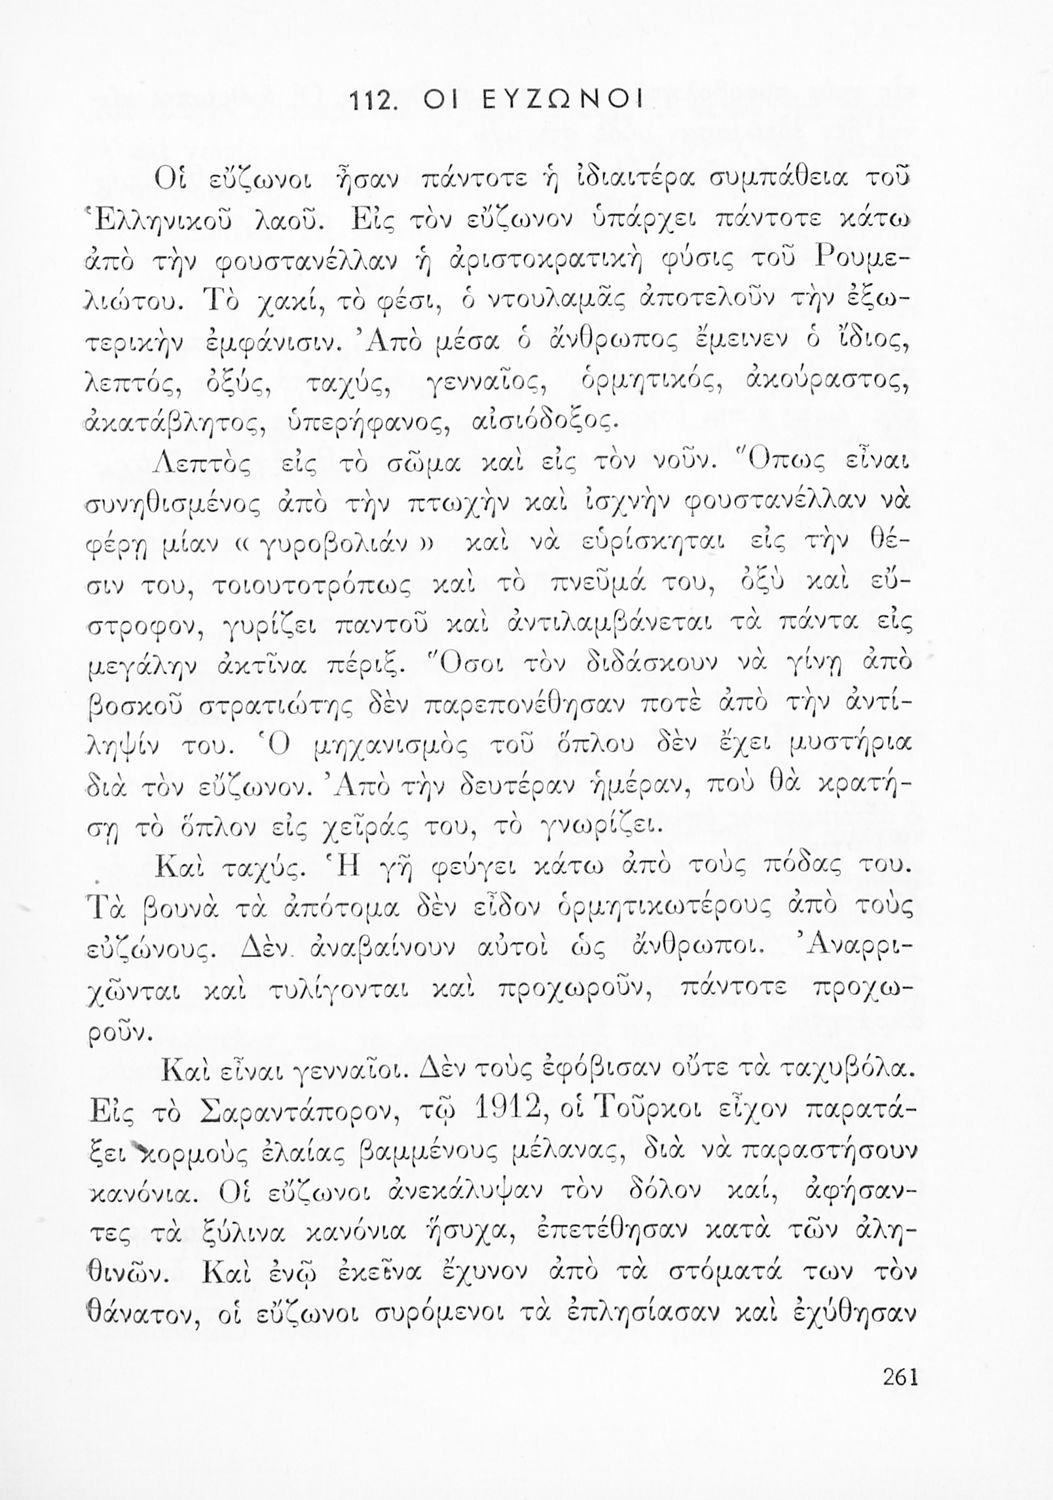 112. ΟΙ ΕΥΖΩΝΟΙ
Οἱ εὔζωνοι ἦσαν πάντοτε ἡ ἰδιαιτέρα συμπάθεια τοῦ
Ἑλληνικοῦ λαοῦ. Εἰς τὸν εὔζωνον ὑπάρχει πάντοτε κάτω
ἀπὸ τὴν φουστανέλλαν ἡ ἀριστοκρατικὴ φύσις τοῦ Ρουμε-
λιώτου. Τὸ χακί, τὸ φέσι, ὁ ντουλαμᾶς ἀποτελοῦν τὴν ἐξω-
τερικὴν ἐμφάνισιν. Ἀπὸ μέσα ὁ ἄνθρωπος ἔμεινεν ὁ ἴδιος,
λεπτός, ὀξύς, ταχύς, γενναῖος, ὁρμητικός, ἀκούραστος,
ἀκατάβλητος, ὑπερήφανος, αἰσιόδοξος.
Λεπτὸς εἰς τὸ σῶμα καὶ εἰς τὸν νοῦν. Ὅπως εἶναι
συνηθισμένος ἀπὸ τὴν πτωχὴν καὶ ἰσχνὴν φουστανέλλαν νὰ
φέρῃ μίαν « γυροβολιάν » καὶ νὰ εὑρίσκηται εἰς τὴν θέ-
σιν του, τοιουτοτρόπως καὶ τὸ πνεῦμά του, ὀξὺ καὶ εὔ-
στροφον, γυρίζει παντοῦ καὶ ἀντιλαμβάνεται τὰ πάντα εἰς
μεγάλην ἀκτῖνα πέριξ. Ὅσοι τὸν διδάσκουν νὰ γίνῃ ἀπὸ
βοσκοῦ στρατιώτης δὲν παρεπονέθησαν ποτὲ ἀπὸ τὴν ἀντί-
ληψίν του. Ὁ μηχανισμὸς τοῦ ὅπλου δὲν ἔχει μυστήρια
διὰ τὸν εὔζωνον. Ἀπὸ τὴν δευτέραν ἡμέραν, ποὺ θὰ κρατή-
σῃ τὸ ὅπλον εἰς χεῖράς του, τὸ γνωρίζει.
Καὶ ταχύς. Ἡ γῆ φεύγει κάτω ἀπὸ τοὺς πόδας του.
Τὰ βουνὰ τὰ ἀπότομα δὲν εἶδον ὁρμητικωτέρους ἀπὸ τοὺς
εὐζώνους. Δὲν ἀναβαίνουν αὐτοὶ ὡς ἄνθρωποι. Ἀναρρι-
χῶνται καὶ τυλίγονται καὶ προχωροῦν, πάντοτε προχω-
ροῦν.
Καὶ εἶναι γενναῖοι. Δὲν τοὺς ἐφόβισαν οὔτε τὰ ταχυβόλα.
Εἰς τὸ Σαραντάπορον, τῷ 1912, οἱ Τοῦρκοι εἶχον παρατά-
ξει κορμοὺς ἐλαίας βαμμένους μέλανας, διὰ νὰ παραστήσουν
κανόνια. Οἱ εὔζωνοι ἀνεκάλυψαν τὸν δόλον καί, ἀφήσαν-
τες τὰ ξύλινα κανόνια ἥσυχα, ἐπετέθησαν κατὰ τῶν ἀλη-
θινῶν. Καὶ ἐνῷ ἐκεῖνα ἔχυνον ἀπὸ τὰ στόματά των τὸν
θάνατον, οἱ εὔζωνοι συρόμενοι τὰ ἐπλησίασαν καὶ ἐχύθησαν
261